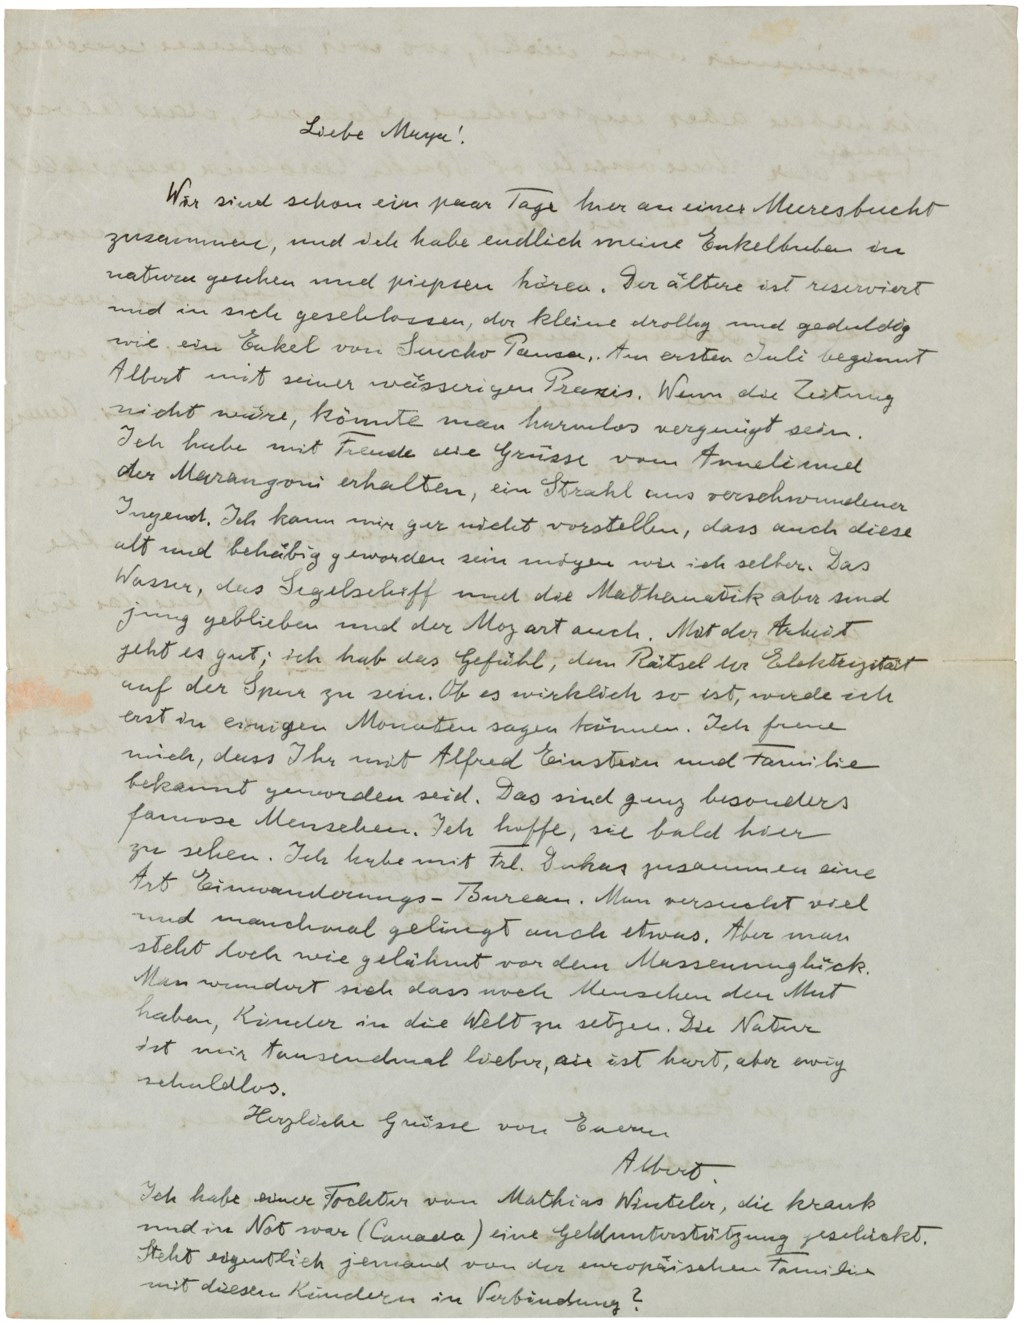 Liebe Maja!
Wir sind schon ein paar Tage hier an einer Meeresbucht
zusammen, und ich habe endlich meine Enkelbuben in
natura gesehen und piepsen hören. Der ältere ist reserviert
und in sich geschlossen, der kleine drollig und geduldig
wie ein Enkel von Sancho Pansa. Am ersten Juli beginnt
Albert mit seiner wässerigen Praxis. Wenn die Zeitung
nicht wäre, könnte man harmlos vergnügt sein.
Ich habe mit Freude die Grüsse vom Anneli und
der Marangoni erhalten, ein Strahl aus verschwundener
Jugend. Ich kann mir gar nicht vorstellen, dass auch diese
alt und behäbig geworden sein mögen wie ich selber. Das
Wasser, das Segelschiff und die Mathematik aber sind
jung geblieben und der Mozart auch. Mit der Arbeit
geht es gut; ich hab das Gefühl, dem Rätsel der Elektrizität
auf der Spur zu sein. Ob es wirklich so ist, werde ich
erst in einigen Monaten sagen können. Ich freue
mich, dass Ihr mit Alfred Einstein und Familie
bekannt geworden seid. Das sind ganz besonders
famose Menschen. Ich hoffe, sie bald hier
zu sehen. Ich habe mit Frl. Dukas zusammen eine
Art Einwanderungs-Bureau. Man versucht viel
und manchmal gelingt auch etwas. Aber man
steht doch wie gelähmt vor dem Massenunglück.
Man wundert sich dass noch Menschen den Mut
haben, Kinder in die Welt zu setzen. Die Natur
ist mir tausendmal lieber, sie ist hart, aber ewig
schuldlos.
Herzliche Grüsse von Euerm
Albert.
Ich habe einer Tochter von Mathias Winteler, die krank
und in Not war (Canada) eine Geldunterstützung geschickt.
Steht eigentlich jemand von der europäischen Familie
mit diesen Kindern in Verbindung?